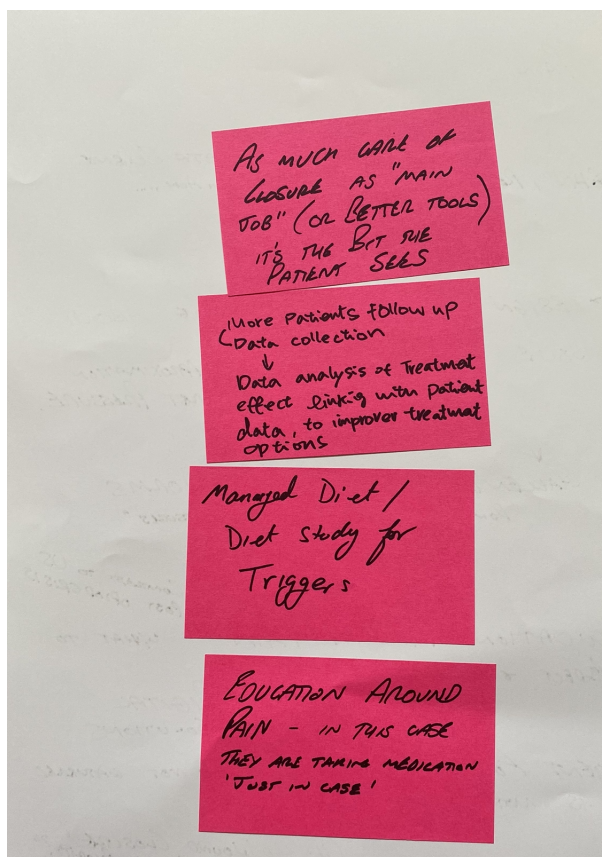 AS MUCH CARE OF
CLOSURE AS "MAIN
JOB" (OR BETTER TOOLS)
IT'S THE BIT THE
PATIENT SEES
More Patients follow up
Data collection
↓
Data analysis of Treatment
effect linking with patient
data, to improver treatment
options
Managed Diet /
Diet study for
Triggers
EDUCATION AROUND
PAIN - IN THIS CASE
THEY ARE TAKING MEDICATION
'JUST IN CASE'